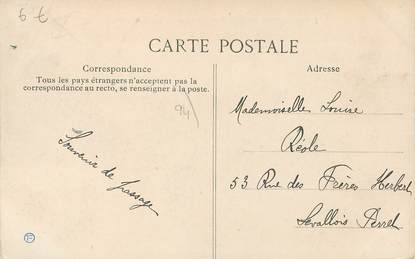 6 €
CARTE POSTALE
Correspondance
Tous les pays étrangers n'acceptent pas la
correspondance au recto, se renseigner à la poste.
Adresse
94
Souvenir de passage
Mademoiselle Louise
Réole
53 Rue des Frères Herbert
Levallois Perret